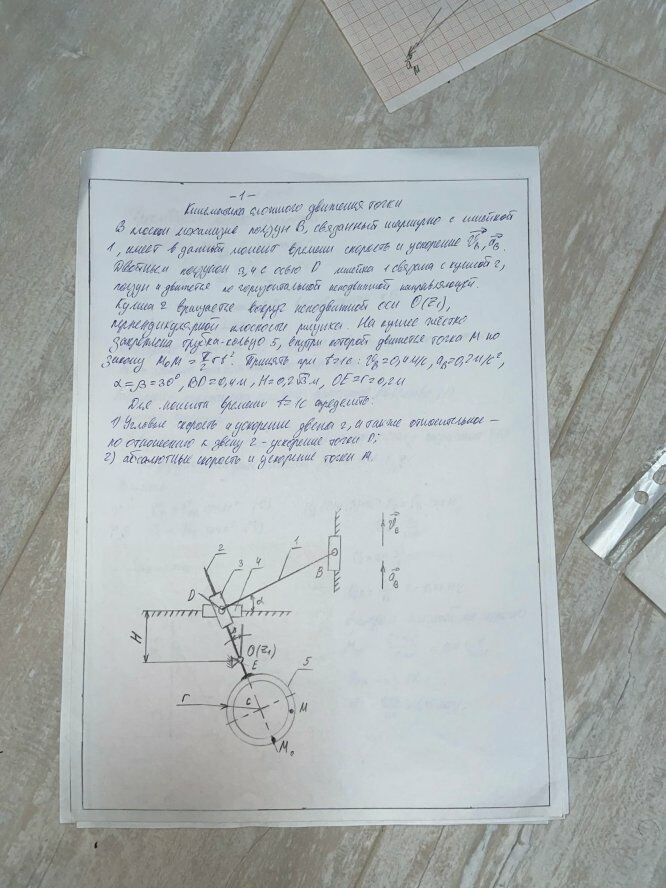 -1-
Кинематика сложного движения точки
В плоском механизме ползун В, связанный шарнирно с линейкой
1, имеет в данный момент времени скорость и ускорение V̄в, āв.
Двойным ползуном 3, 4 с осью D линейка 1 связана с кулисой 2,
ползун 4 движется по горизонтальной неподвижной направляющей.
Кулиса 2 вращается вокруг неподвижной оси O(Z₁),
перпендикулярной плоскости рисунка. На кулисе жёстко
закреплена трубка-кольцо 5, внутри которой движется точка М по
закону М₀М = π/2 r t². Принять при t=1c: Vв=0,4 м/с, aв=0,2 м/с²,
α=β=30°, BD=0,4м, H=0,2√3 м, OE=r=0,2м
Для момента времени t=1c определить:
1) Угловые скорость и ускорение звена 2, а также относительное –
по отношению к звену 2 – ускорение точки D;
2) абсолютные скорость и ускорение точки М.
2
3
4
1
D
α
B
V̄в
āв
H
O(Z₁)
E
5
r
c
M
M₀
M